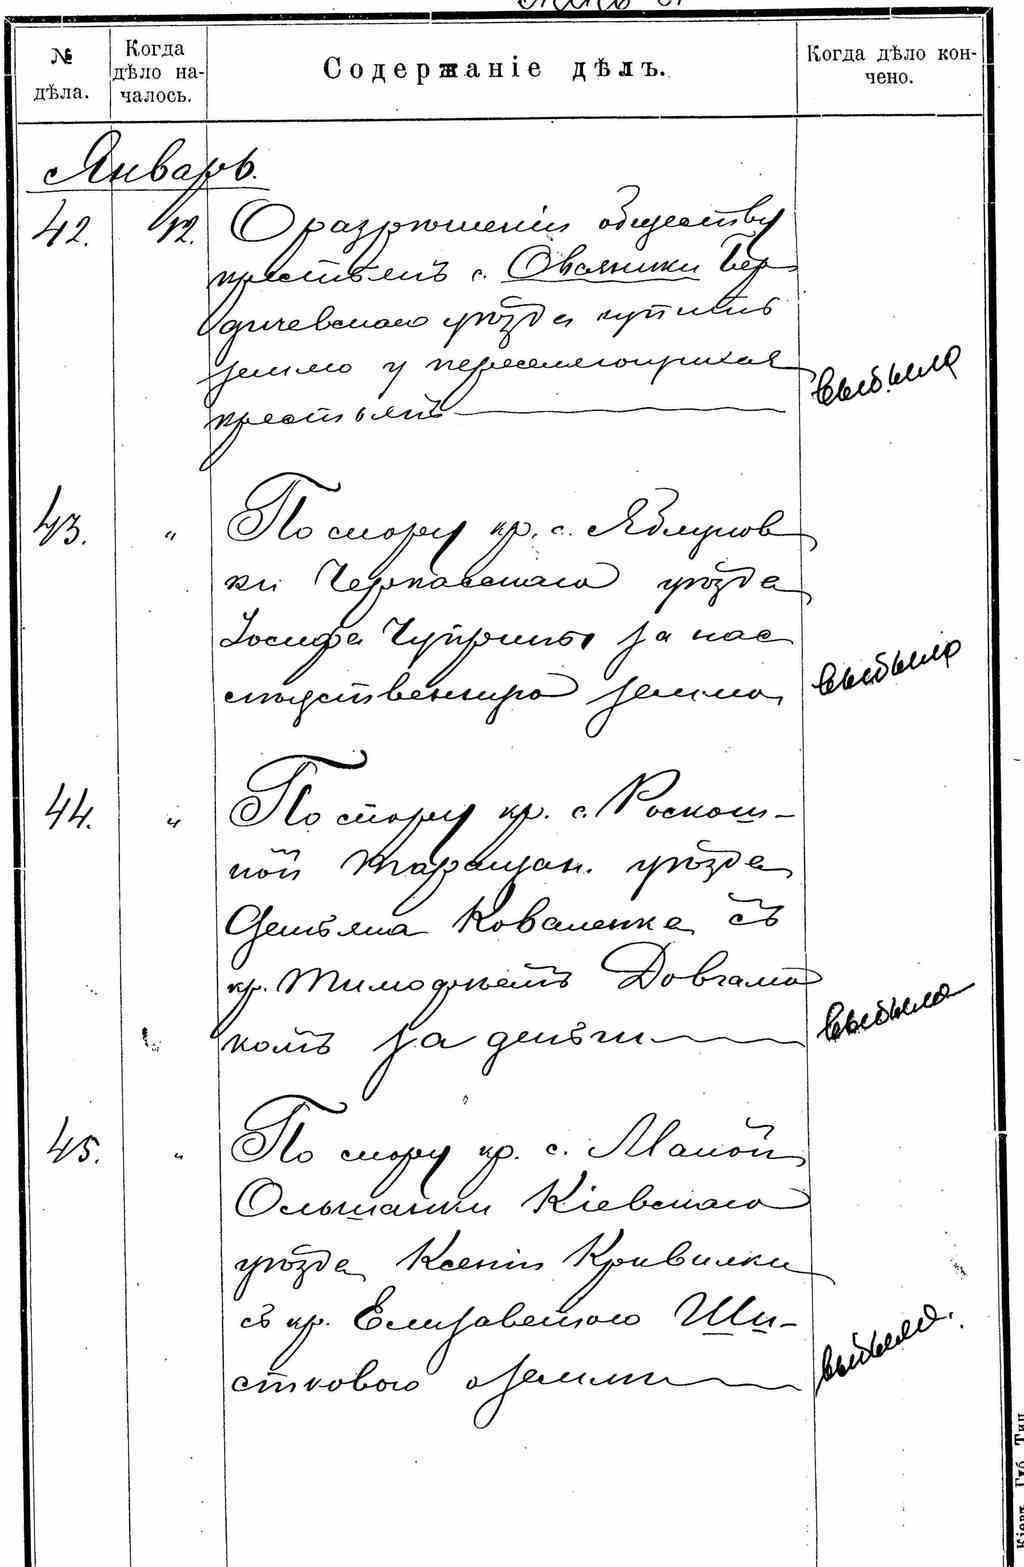 № дѣла.
Когда дѣло на-
чалось.
Содержаніе дѣлъ.
Когда дѣло кон-
чено.
Январь.
42. 12. О разрѣшеніи обществу
крестьянъ с. Овсяники Бер-
дичевскаго уѣзда купить
землю у переселяющихся
крестьянъ
выбыло
43. " По спору кр. с. Яблунов
ки Черкасскаго уѣзда
Іосифа Чуприны за нас
лѣдственную землю
выбыло
44. " По спору кр. с. Роскош-
ной Таращан. уѣзда
Демьяна Коваленка съ
кр. Тимофѣемъ Довгалю
комъ за деньги
выбыло
45. " По спору кр. с. Малой
Ольшанки Кіевскаго
уѣзда Ксеніи Кривилки
съ кр. Елизаветою Ши-
стковою о земли
выбыло.
Кіевъ. Губ. Тип.